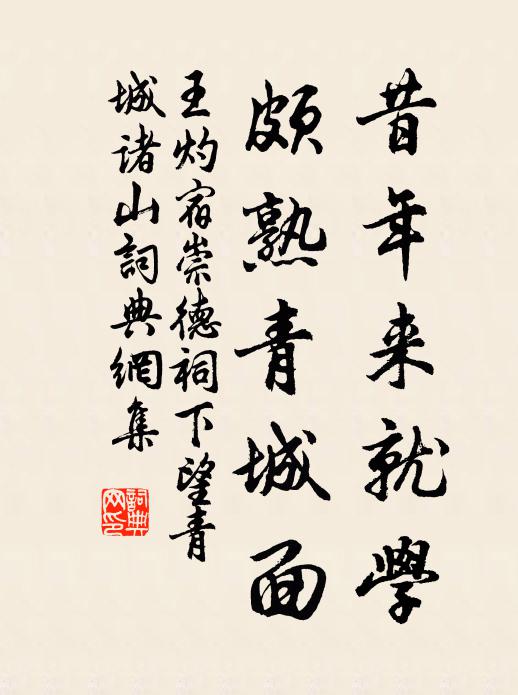 昔年来就學
頗熟青城面
王灼宿崇德祠下望青
城诸山詞典網集
詞典网印